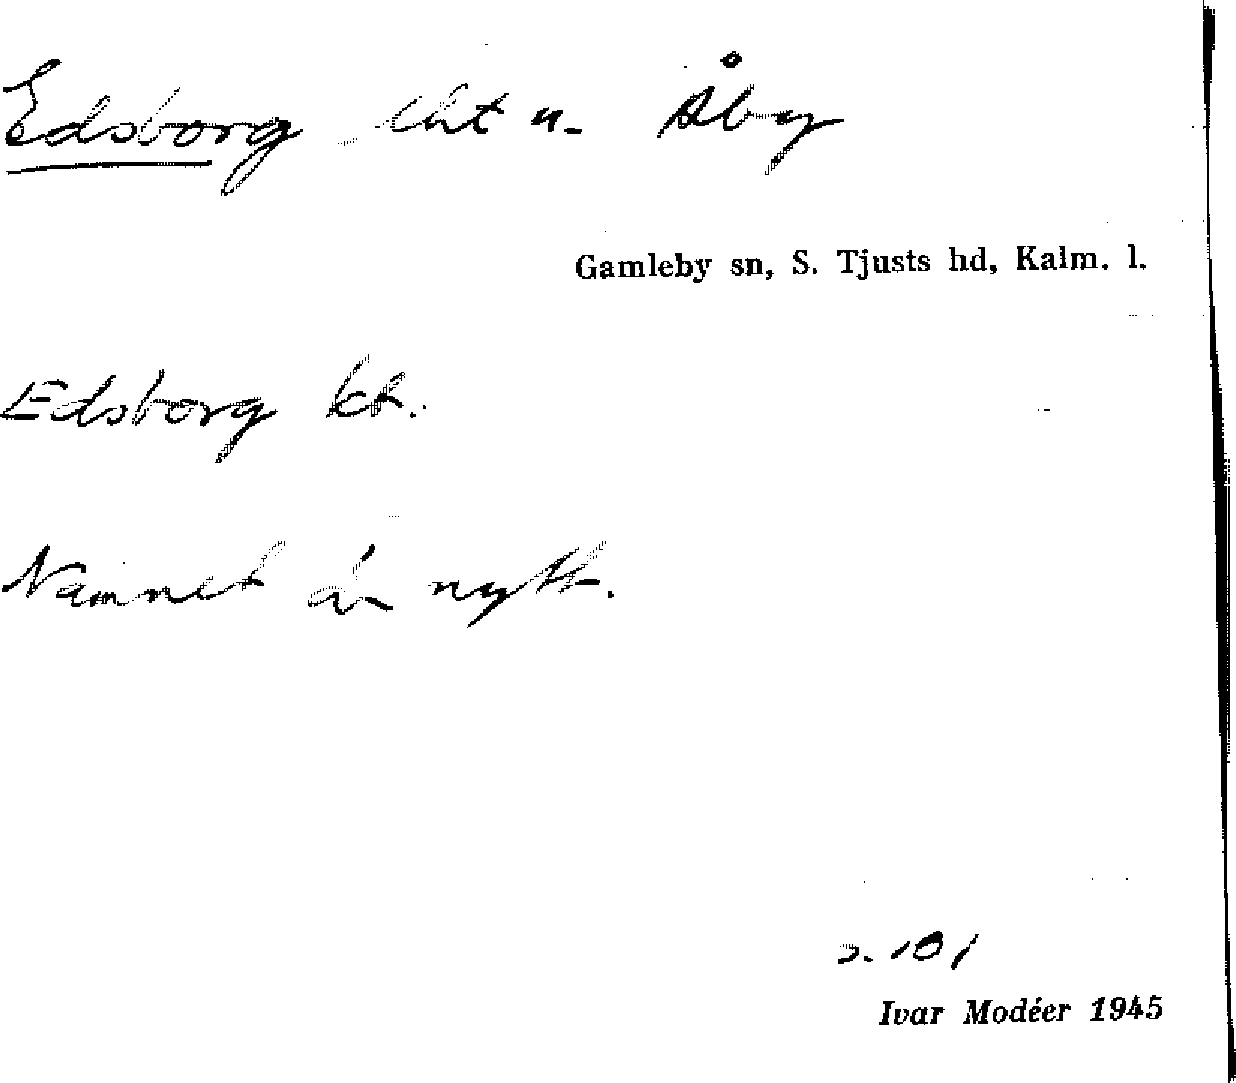 Edsborg lht u. Åby
Gamleby sn, S. Tjusts hd, Kalm. l.
Edsborg kk.
Namnet är nytt.
s. 101
Ivar Modéer 1945